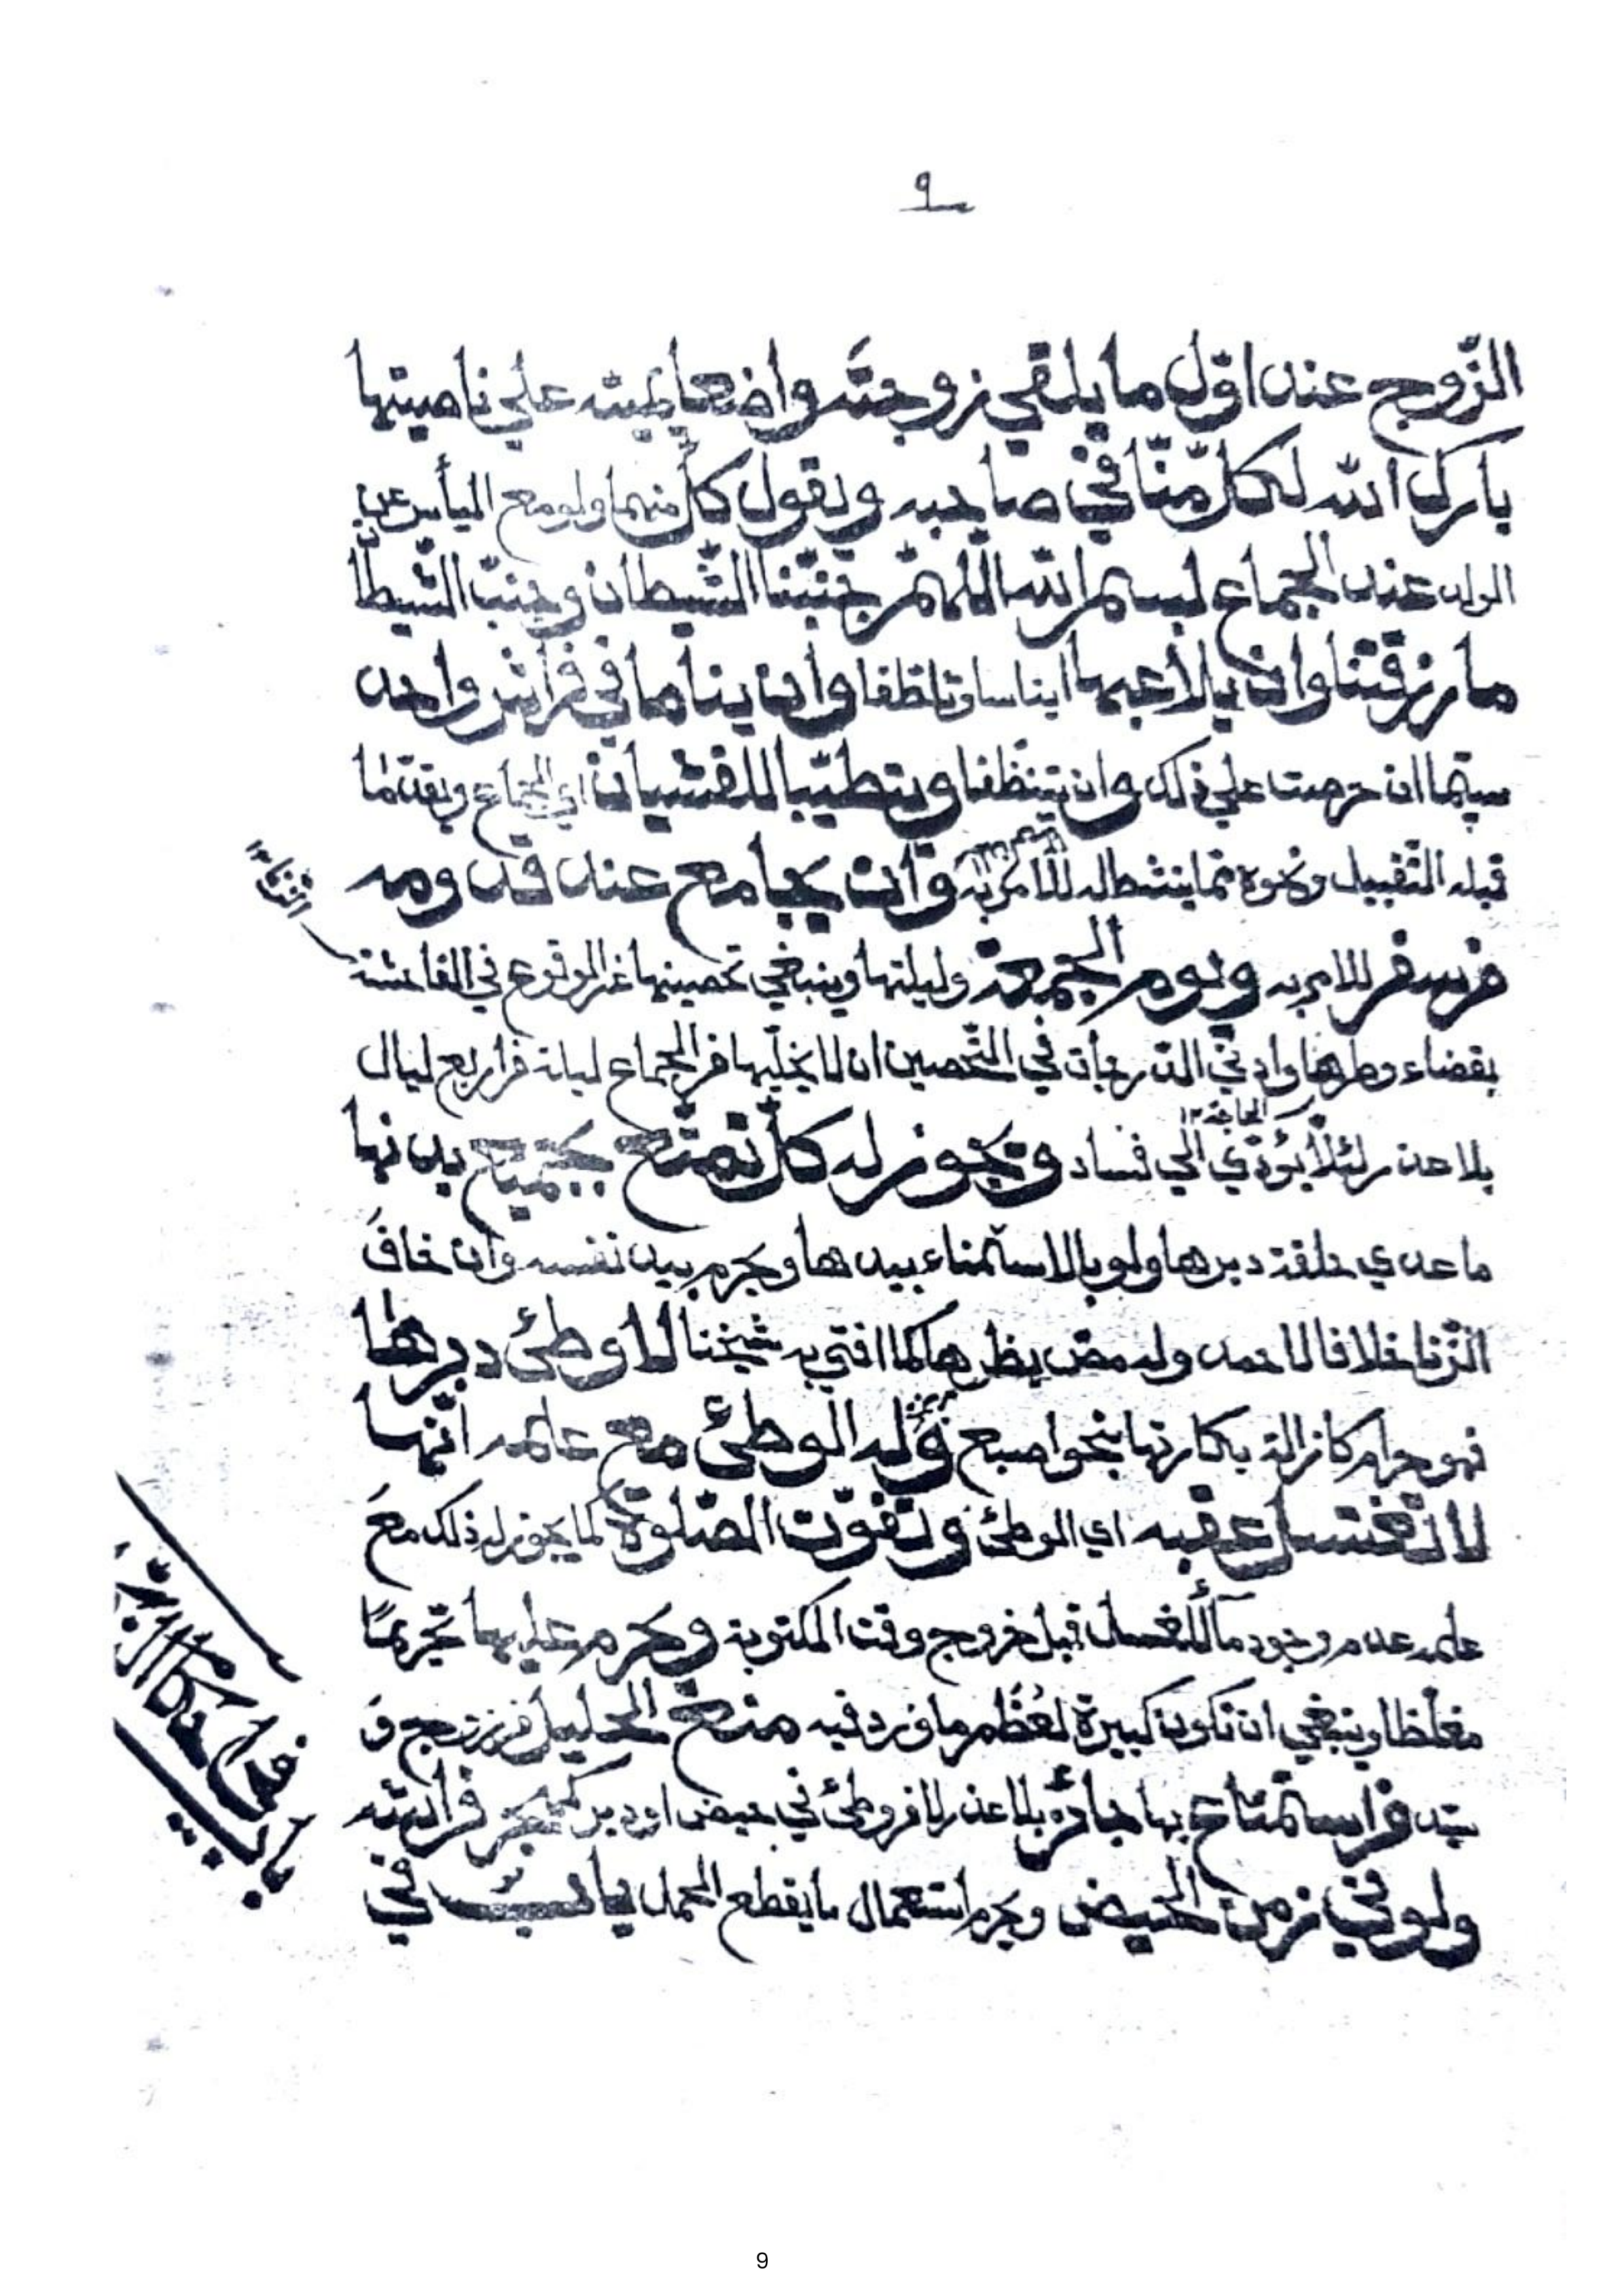 ٩
الزّوج عند اوّل ما يلقي زوجته واضعا يمينه علي ناصيتها
بارك الله لكلّ منّا في صاحبه ويقول كلّ منهما ولو مع اليأس عن
الولد عند الجماع بسم الله اللهمّ جنّبنا الشّيطان وجنّب الشّيطان
ما رزقتنا وان يلاعبها ايناسا وتلطّفا وان يناما في فراش واحد
سيّما ان حرصت علي ذلك وان يتنظّفا ويتطيّبا للغشيان اي الجماع ويقدّما
قبله التّقبيل ونحوه ممّا ينشط له للامر به وان يجامع عند قدومه
من سفر للامر به ويوم الجمعة وليلتها وينبغي تحصينها عن الوقوع في الفاحشة
بقضاء وطرها وادني الدّرجات في التّحصين ان لا يخلّيها من الجماع ليلة من اربع ليال
بلا عذر لئلّا يؤدّي الي فساد ويجوز له كلّ تمتّع بجميع بدنها
ما عدي حلقة دبرها ولو بالاستمناء بيدها ويحرم بيد نفسه وان خاف
الزّنا خلافا لاحمد وله مصّ بظرها كما افتي به شيخنا لا وطئ دبرها
فهو حرام كازالة بكارتها بنحو اصبع وله الوطئ مع علمه انّها
لا تغتسل عقبه اي الوطئ وتفوّت الصّلوة كما يجوز له ذلك مع
علمه عدم وجود مآء للغسل قبل خروج وقت المكتوبة ويحرم عليها تحريمًا
مغلّظا وينبغي ان تكون كبيرة لعُظْم ما ورد فيه منع الحليل من زوج و
سيّد من استمتاع بها جائز بلا عذر لا من وطئ في حيض او دبر كمنعه من ازالته
ولو في زمن الحيض ويحرم استعمال ما يقطع الحمل
9